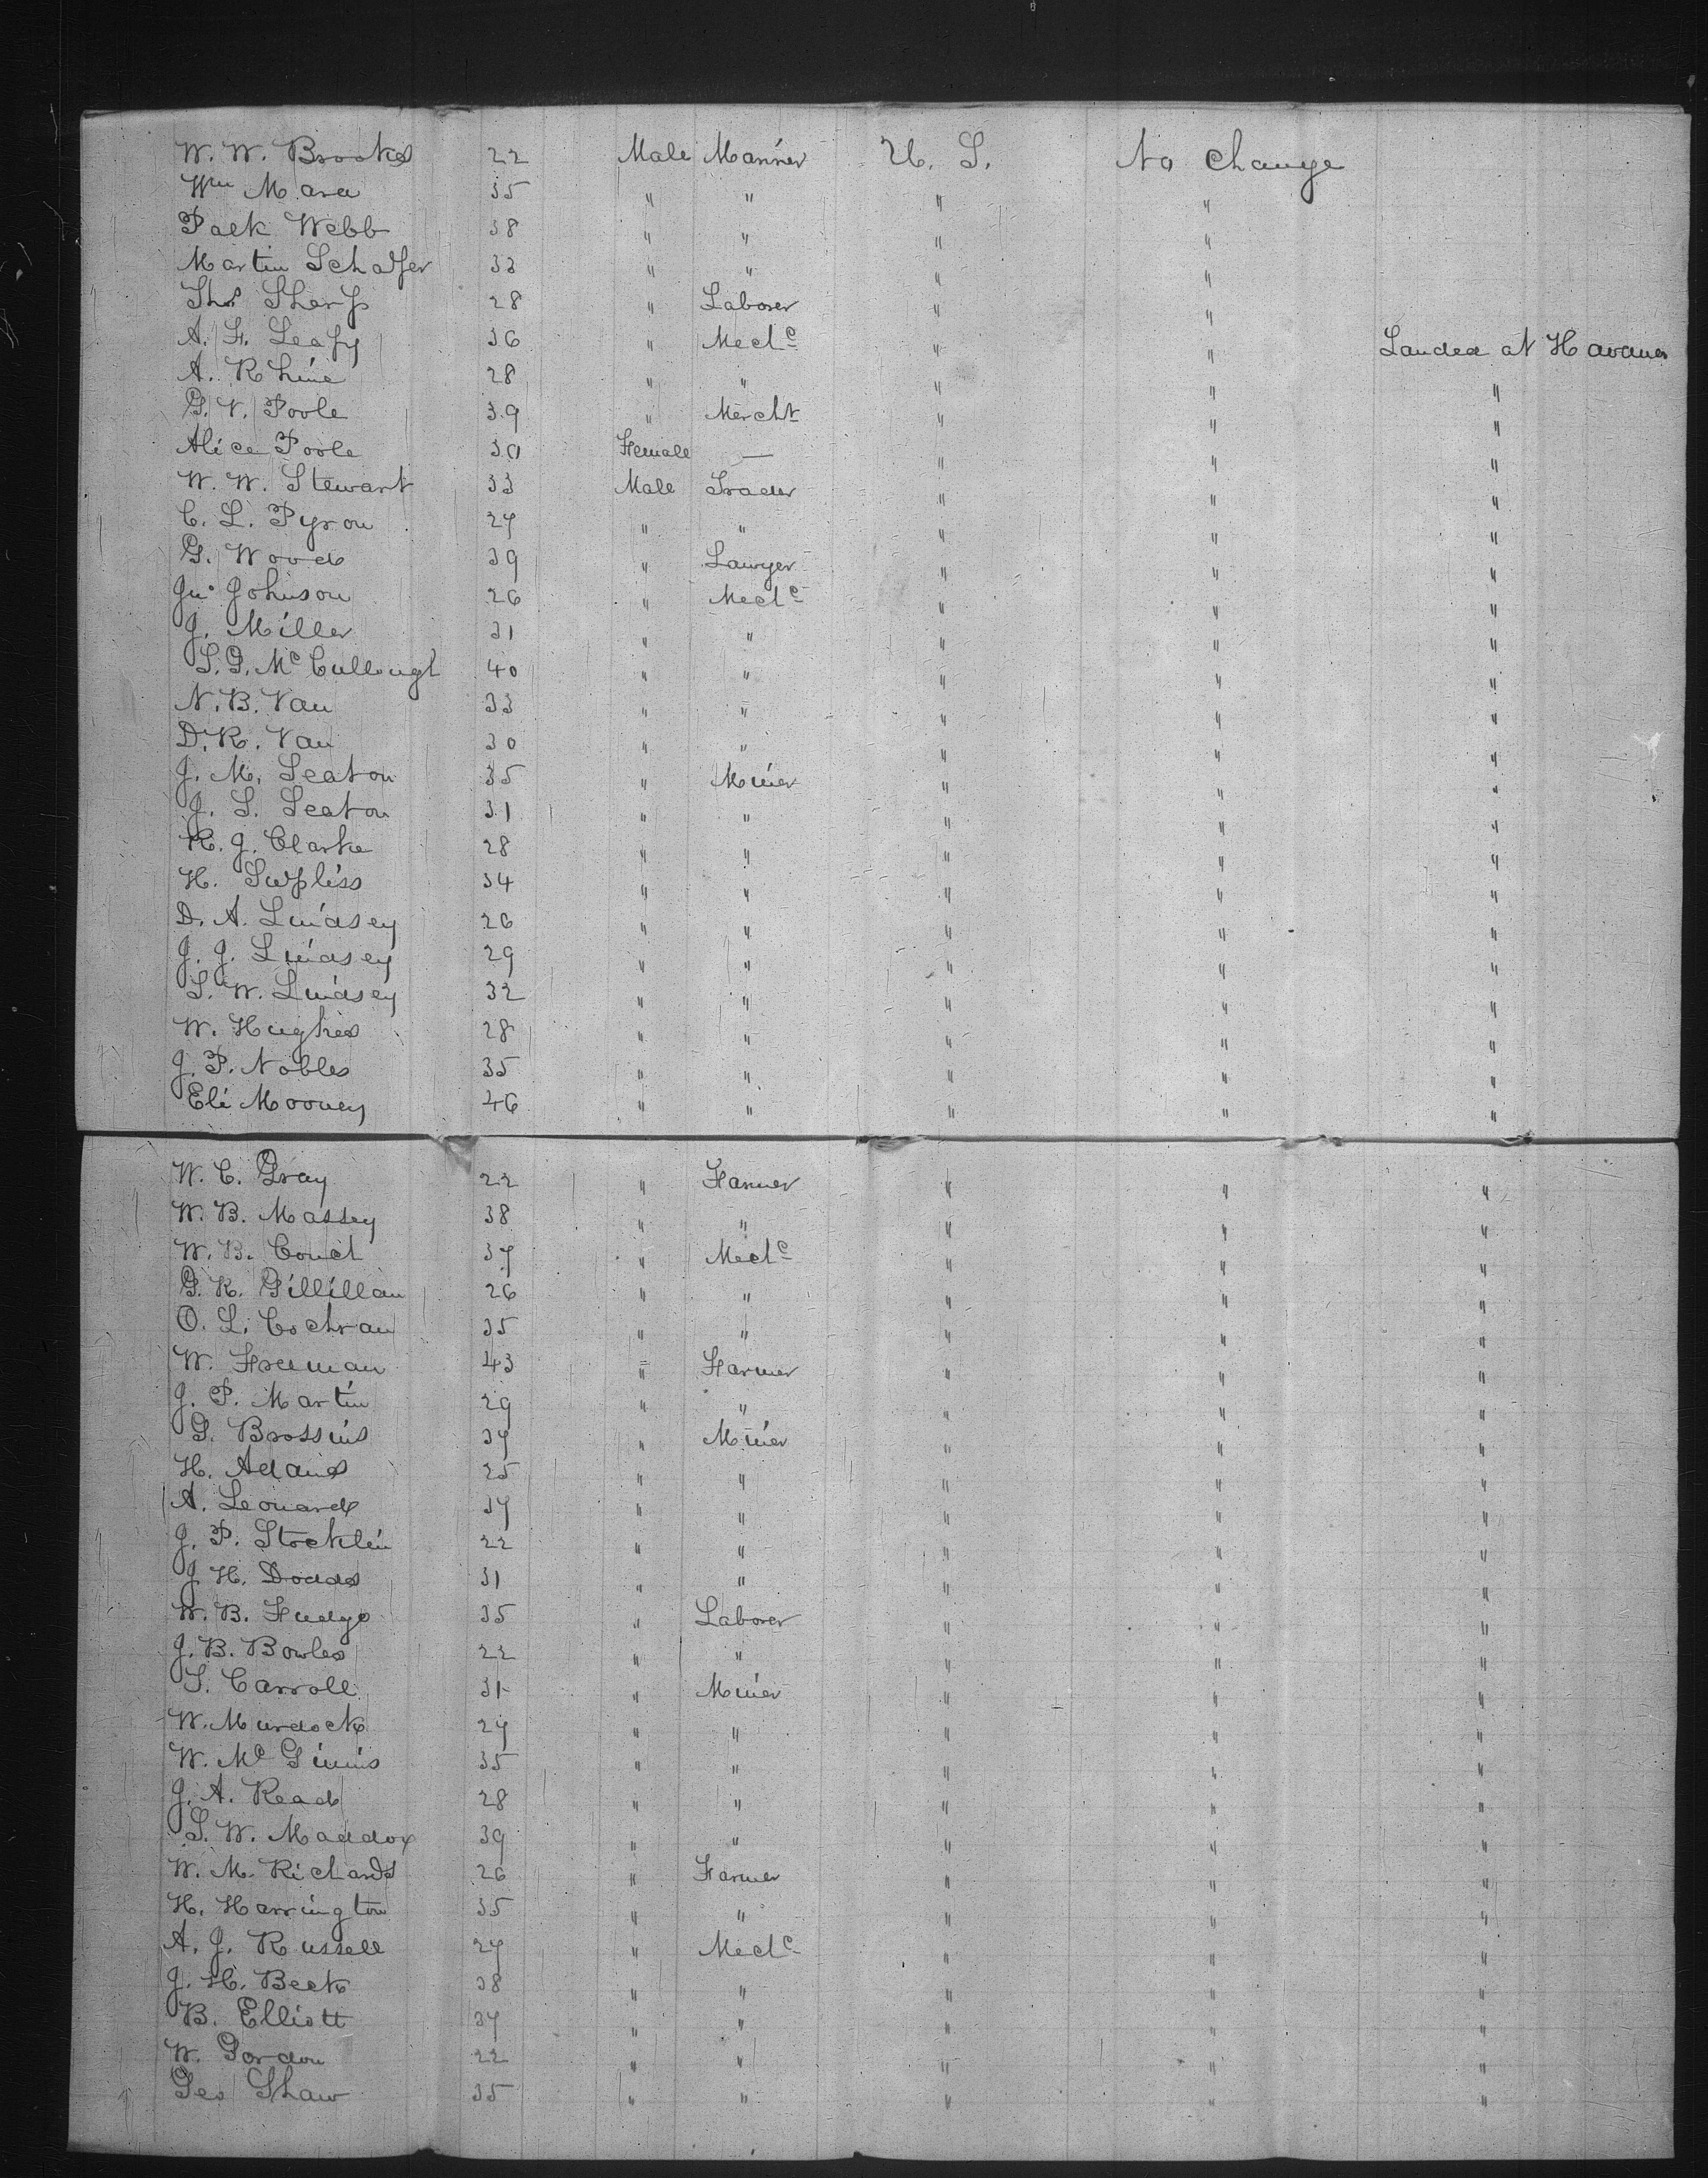 W. W. Brooks 22 Male Mariner U. S. No Change
Wm Mara 35 " " " "
Pack Webb 38 " " " "
Martin Schaffer 33 " " " "
Thos Sharp 28 " Laborer " "
A. F. Leafy 36 " Mechc " " Landed at Havana
A. Rhine 28 " " " " "
G. V. Poole 39 " Mercht " " "
Alice Poole 30 Female — " " "
W. W. Stewart 33 Male Trader " " "
C. L. Pyron 27 " " " " "
G. Woods 39 " Lawyer " " "
Jno Johnson 26 " Mechc " " "
J. Miller 31 " " " " "
S. G. McCullough 40 " " " " "
N. B. Van 33 " " " " "
D. R. Van 30 " " " " "
J. M. Seaton 35 " Miner " " "
J. S. Seaton 31 " " " " "
R. J. Clarke 28 " " " " "
H. Supliss 34 " " " " "
D. A. Lindsey 26 " " " " "
J. J. Lindsey 29 " " " " "
S. W. Lindsey 32 " " " " "
W. Hughes 28 " " " " "
J. P. Nobles 35 " " " " "
Eli Mooney 46 " " " " "
W. C. Gray 22 " Farmer " " "
W. B. Massey 38 " " " " "
W. B. Couch 37 " Mechc " " "
G. K. Gillillan 26 " " " " "
O. L. Cochran 35 " " " " "
W. Freeman 43 " Farmer " " "
J. P. Martin 29 " " " " "
G. Brossins 37 " Miner " " "
H. Adams 25 " " " " "
A. Leonard 37 " " " " "
J. P. Stocklin 22 " " " " "
J. H. Dodds 31 " " " " "
W. B. Fudge 35 " Laborer " " "
J. B. Bowles 22 " " " " "
S. Carroll 31 " Miner " " "
W. Murdock 27 " " " " "
W. McGinnis 35 " " " " "
J. A. Read 28 " " " " "
S. W. Maddox 39 " " " " "
W. M. Richards 26 " Farmer " " "
H. Harrington 35 " " " " "
A. J. Russell 27 " Mechc " " "
J. H. Beck 38 " " " " "
B. Elliott 37 " " " " "
W. Gordon 22 " " " " "
Geo Shaw 35 " " " " "